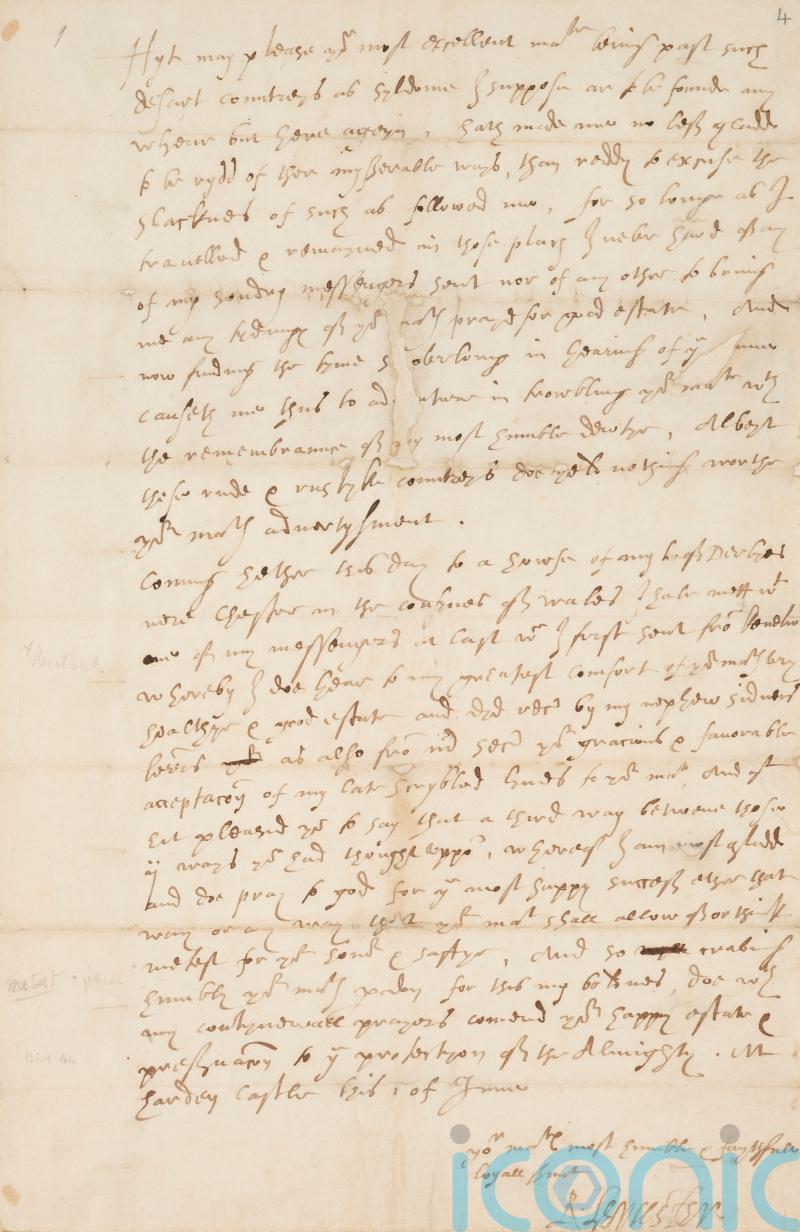 4
Hyt may please yr most excellent matie being past such
desart countreys as syldome I suppose ar to be founde any
whear but here ageyn, hath made me no less gladd
to be rydd of ther myserable ways, than reddy to excuse the
slacknes of such as followed me, for so longe as I
travelled & remayned in those places I never hard of any
of my sondry messengers sent nor of any other to bring
me any tydings of yr maties prayd for good estate, And
now finding the tyme overlong in hearing of ye same
causeth me thus to in trowbling yr matie wth
the remembrance of my most humble dewtye, Albeyt
these rude & rustyke countreys doe yeld nothing worthe
yr maties advertysment.
Coming hether this day to a howse of my L. of Derbyes
nere Chester in the confines of wales I have mett wt
one of my messengers at last wc I first sent fro Kenelw
whereby I doe hear to my greatest comfort of yr maties very
healthye & good estate and dyd recv by my nephew Sidneis
letters as also fro mr Secr yr gracious & favorable
acceptacon of my late scrybled lynes to yr matie. And yt
hit pleased yr to say that a third way betwene those
ij ways yr had thought uppo, whereof I am most gladd
and doe pray to god for ye most happy success ether that
way or any way that yr matie shall allow of or think
metest for yr honr & saftye, And so craving
humbly yr maties pardon for this my boldnes, doe wth
my contynewall prayers comend yr happy estate &
preservacon to ye protection of the Almighty. At
harden castle this 1 of June
yor maties most humble & faythfull
loyall srvnt
R. Leycester
iconic